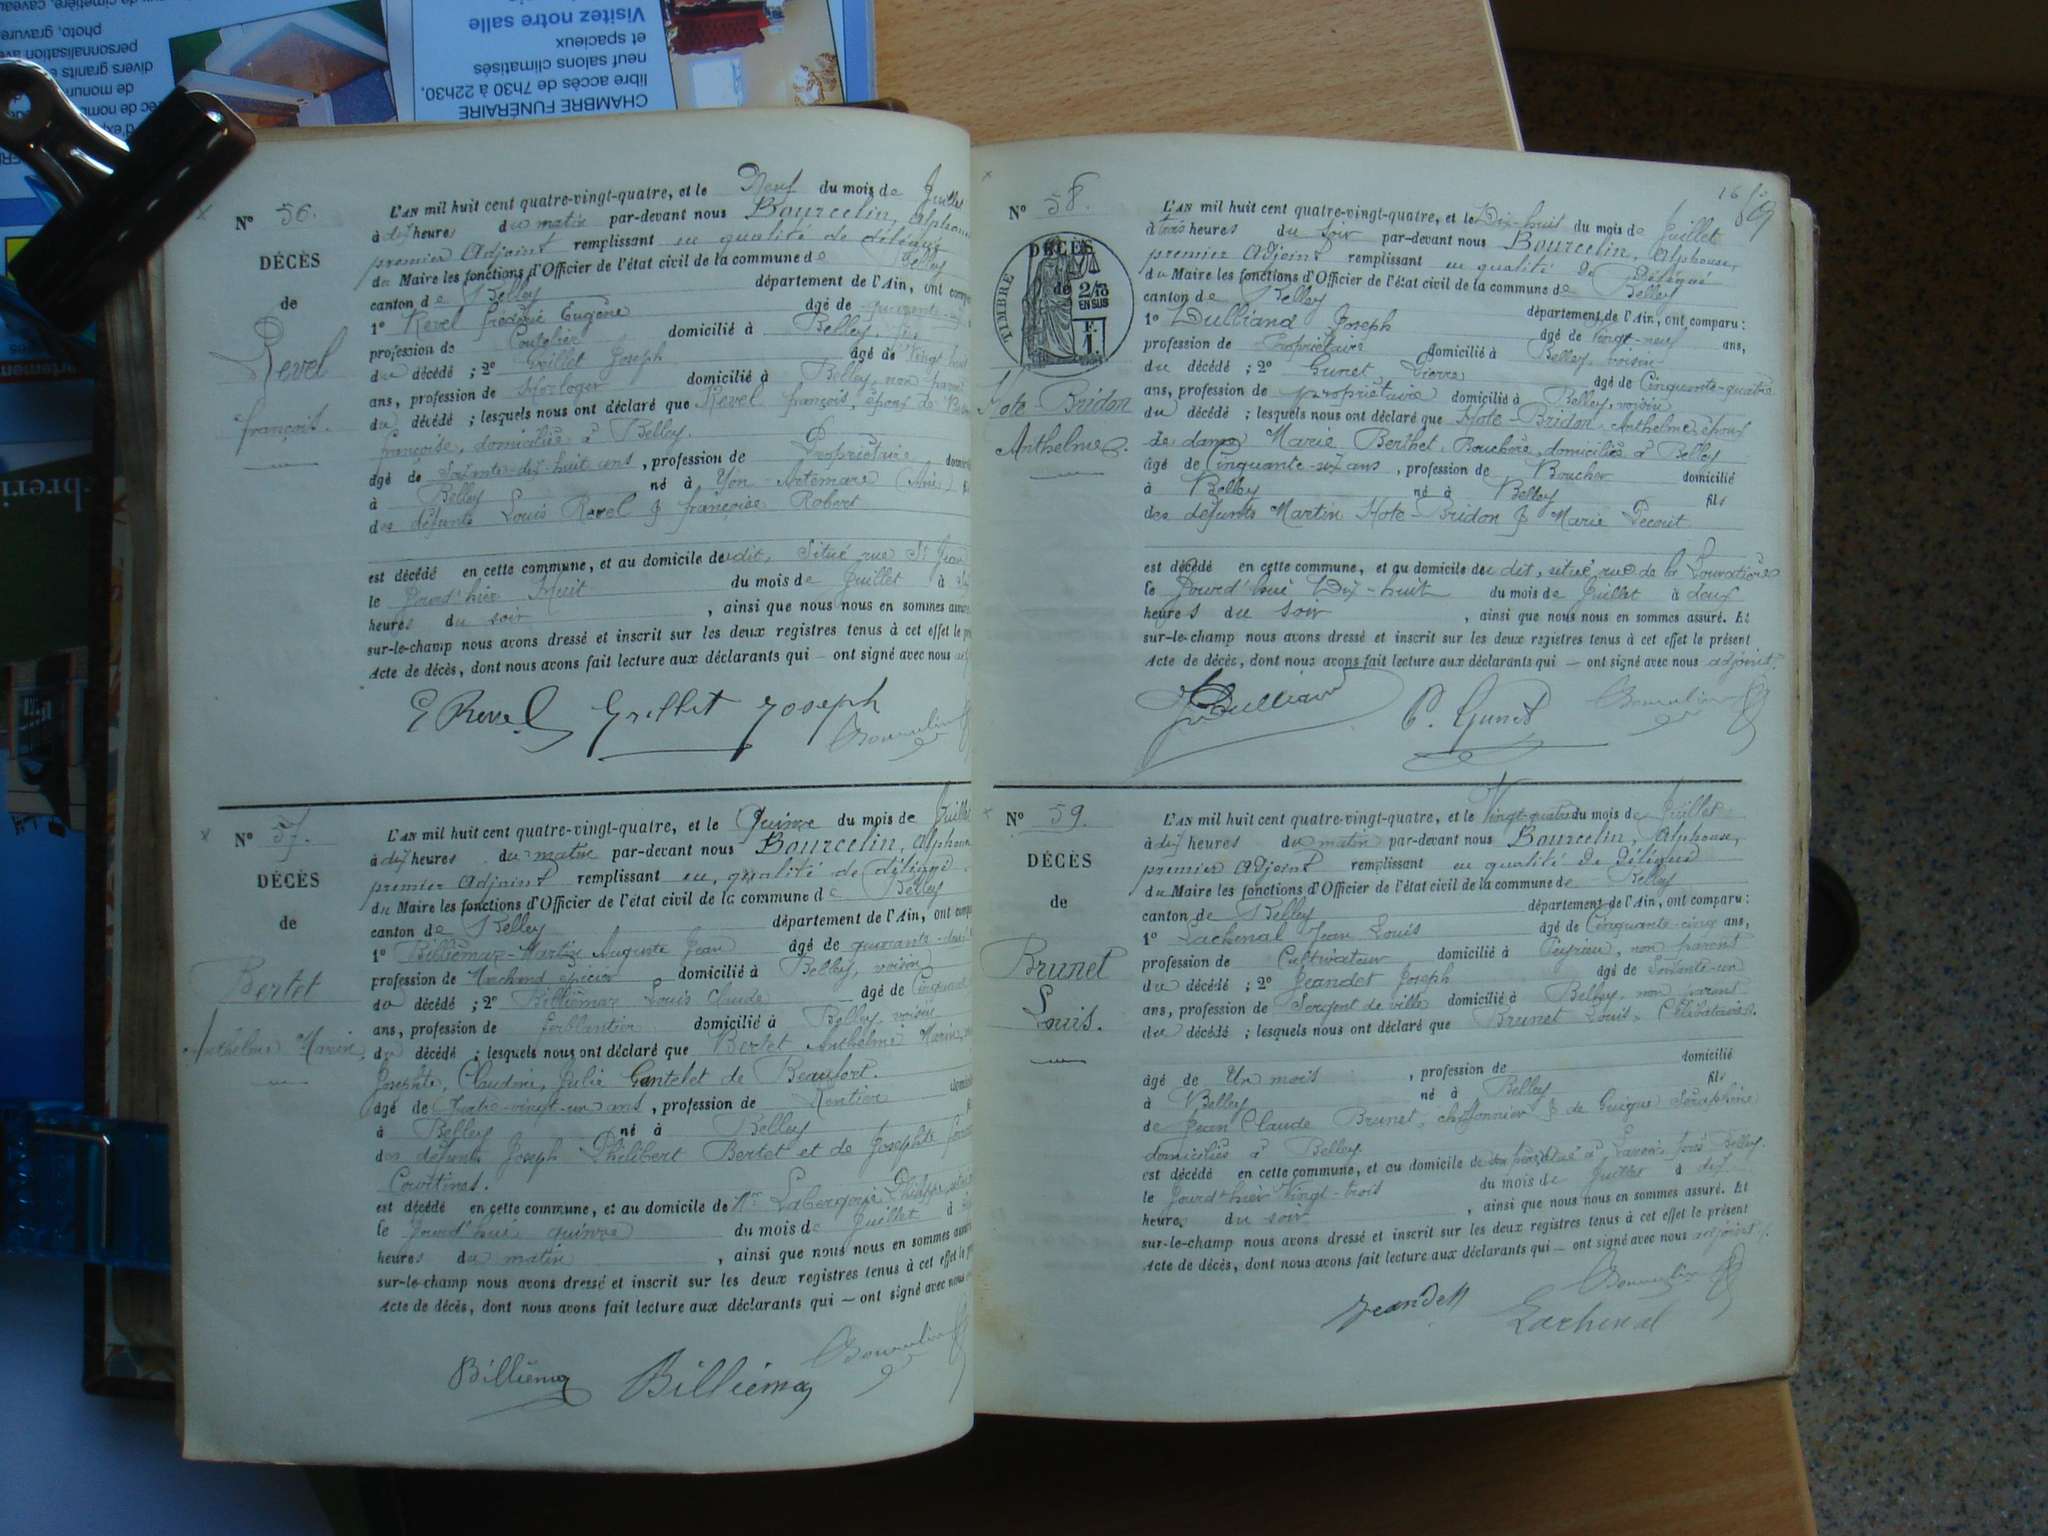 Visitez notre salle
et spacieux
neuf salons climatisés
libre accès de 7h30 à 22h30,
CHAMBRE FUNÉRAIRE
photo, gravure
personnalisation
divers granits
de monum
N° 56.
DÉCÈS
de
Revel
françois.
L'AN mil huit cent quatre-vingt-quatre, et le Neuf du mois de Juillet
à dix heures du matin par-devant nous Bourcelin, Alphonse
premier Adjoint remplissant en qualité de délégué
du Maire les fonctions d'Officier de l'état civil de la commune de Belley
canton de Belley département de l'Ain, ont comp
1° Revel frédéric Eugène âgé de quarante
profession de Coutelier domicilié à Belley, fils
du décédé ; 2° Grillet Joseph âgé de vingt huit
ans, profession de Horloger domicilié à Belley, non parent
du décédé ; lesquels nous ont déclaré que Revel françois, époux de
françoise, domiciliée à Belley.
âgé de Soixante-dix-huit ans, profession de Propriétaire domicilié
à Belley né à Yon-Artemare (Ain) fi
des défunts Louis Revel & françoise Robert
est décédé en cette commune, et au domicile du dit, situé rue St Jean
le jourd'hier Huit du mois de Juillet à
heures du soir, ainsi que nous nous en sommes assuré
sur-le-champ nous avons dressé et inscrit sur les deux registres tenus à cet effet le p
Acte de décès, dont nous avons fait lecture aux déclarants qui — ont signé avec nous
E Revel Grillet Joseph Bourcelin
N° 57.
DÉCÈS
de
Bertet
Anthelme Marin,
L'AN mil huit cent quatre-vingt-quatre, et le Quinze du mois de Juillet
à dix heures du matin par-devant nous Bourcelin, Alphonse
premier Adjoint remplissant en qualité de délégué
du Maire les fonctions d'Officier de l'état civil de la commune de Belley
canton de Belley département de l'Ain, ont comp
1° Billiémaz-Martin Auguste Jean âgé de quarante-deux
profession de Marchand épicier domicilié à Belley, voisin
du décédé ; 2° Billiémaz Louis Claude âgé de Cinquante
ans, profession de ferblantier domicilié à Belley, voisin
du décédé ; lesquels nous ont déclaré que Bertet Anthelme Marin,
Josephte, Claudine, Julie Gantelet de Beaufort.
âgé de Quatre-vingt-un ans, profession de Rentier domicilié
à Belley né à Belley
des défunts Joseph Philibert Bertet et de Josephte
est décédé en cette commune, et au domicile de Mr Philippe,
le jourd'hui quinze du mois de Juillet à
heures du matin, ainsi que nous nous en sommes assuré
sur-le-champ nous avons dressé et inscrit sur les deux registres tenus à cet effet le p
Acte de décès, dont nous avons fait lecture aux déclarants qui — ont signé avec nous
Billiémaz Billiémaz Bourcelin
N° 58.
DÉCÈS
de
TIMBRE
2/10
EN SUS
Hote-Bridon
Anthelme.
L'AN mil huit cent quatre-vingt-quatre, et le Dix-huit du mois de Juillet
à trois heures du soir par-devant nous Bourcelin, Alphonse,
premier Adjoint remplissant en qualité de Délégué
du Maire les fonctions d'Officier de l'état civil de la commune de Belley
canton de Belley département de l'Ain, ont comparu :
1° Dulliand Joseph âgé de Vingt-neuf ans,
profession de Propriétaire domicilié à Belley, voisin
du décédé ; 2° Gunet Pierre âgé de Cinquante-quatre
ans, profession de propriétaire domicilié à Belley, voisin
du décédé ; lesquels nous ont déclaré que Hote-Bridon, Anthelme, époux
de dame Marie Berthet, Bouchère, domiciliés à Belley
âgé de Cinquante-six ans, profession de Boucher domicilié
à Belley né à Belley fils
des défunts Martin Hote-Bridon & Marie Pecout
est décédé en cette commune, et au domicile du dit, situé rue de la Louvatière
le jourd'hui Dix-huit du mois de Juillet à deux
heures du soir, ainsi que nous nous en sommes assuré. Et
sur-le-champ nous avons dressé et inscrit sur les deux registres tenus à cet effet le présent
Acte de décès, dont nous avons fait lecture aux déclarants qui — ont signé avec nous adjoint.
J Dulliand P. Gunet Bourcelin
N° 59.
DÉCÈS
de
Brunet
Louis.
L'AN mil huit cent quatre-vingt-quatre, et le Vingt-quatre du mois de Juillet
à dix heures du matin par-devant nous Bourcelin, Alphonse,
premier Adjoint remplissant en qualité de Délégué
du Maire les fonctions d'Officier de l'état civil de la commune de Belley
canton de Belley département de l'Ain, ont comparu :
1° Lachenal Jean Louis âgé de Cinquante-cinq ans,
profession de Cultivateur domicilié à Peyrieu, non parent
du décédé ; 2° Jeandet Joseph âgé de Soixante-un
ans, profession de Sergent de ville domicilié à Belley, non parent
du décédé ; lesquels nous ont déclaré que Brunet Louis, Célibataire
âgé de Un mois, profession de domicilié
à Belley né à Belley fils
de Jean Claude Brunet, chiffonnier & de Guigue Séraphine
domiciliés à Belley
est décédé en cette commune, et au domicile de son père, situé à près Belley.
le jourd'hier Vingt-trois du mois de Juillet à dix
heures du soir, ainsi que nous nous en sommes assuré. Et
sur-le-champ nous avons dressé et inscrit sur les deux registres tenus à cet effet le présent
Acte de décès, dont nous avons fait lecture aux déclarants qui — ont signé avec nous adjoint.
Jeandet Lachenal Bourcelin